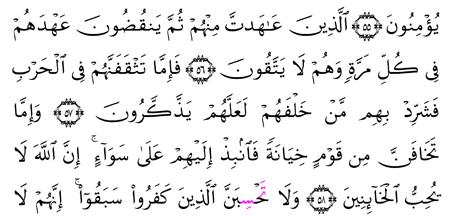 يُؤْمِنُونَ ۝٥٥ ٱلَّذِينَ عَٰهَدتَّ مِنْهُمْ ثُمَّ يَنقُضُونَ عَهْدَهُمْ
فِى كُلِّ مَرَّةٍ وَهُمْ لَا يَتَّقُونَ ۝٥٦ فَإِمَّا تَثْقَفَنَّهُمْ فِى ٱلْحَرْبِ
فَشَرِّدْ بِهِم مَّنْ خَلْفَهُمْ لَعَلَّهُمْ يَذَّكَّرُونَ ۝٥٧ وَإِمَّا
تَخَافَنَّ مِن قَوْمٍ خِيَانَةً فَٱنۢبِذْ إِلَيْهِمْ عَلَىٰ سَوَآءٍ ۚ إِنَّ ٱللَّهَ لَا
يُحِبُّ ٱلْخَآئِنِينَ ۝٥٨ وَلَا تَحْسِبَنَّ ٱلَّذِينَ كَفَرُوا۟ سَبَقُوٓا۟ ۚ إِنَّهُمْ لَا